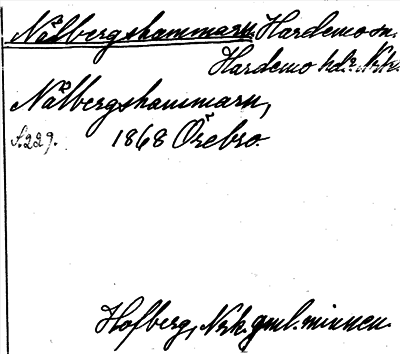 Nålbergshammarn, Hardemo sn.
Hardemo hd? Nrk.
Nålbergshammarn,
s. 229. 1868 Örebro.
Hofberg, Nrk. gml. minnen.